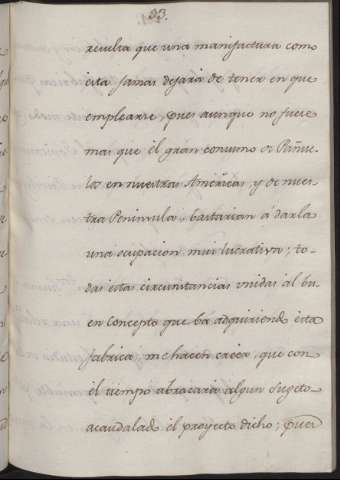 33.
resulta que una manifactura como
esta jamas dejará de tener en que
emplearse, pues aunque no fuese
mas que el gran consumo de Pañue-
los en nuestras Américas, y de nues-
tra Peninsula, bastarian á darla
una ocupacion mui lucrativa; to-
das estas circunstancias unidas al bu-
en Concepto que bá adquiriendo esta
fabrica, me hacen creer, que con
el tiempo abrazará algun Sugeto
acaudalado el proyecto dicho; pues